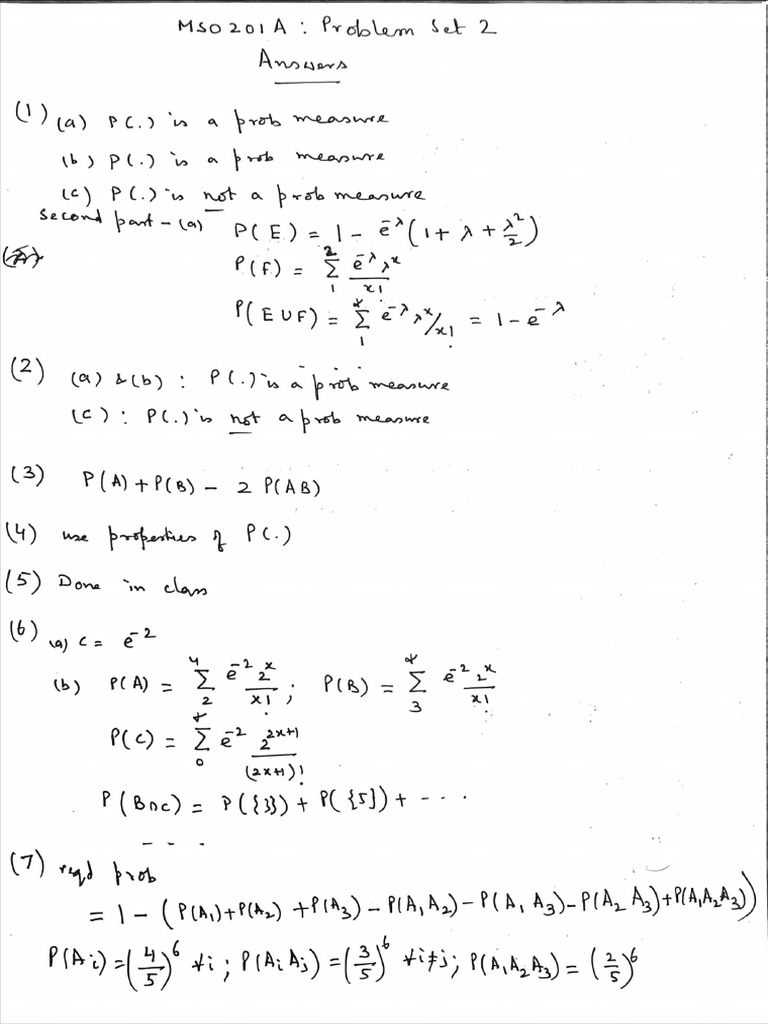 MSO201A : Problem Set 2
Answers
(1) (a) P(.) is a prob measure
(b) P(.) is a prob measure
(c) P(.) is not a prob measure
Second part - (a) P(E) = 1 - e^{-λ}(1 + λ + λ²/2)
P(F) = Σ_{1}^{2} e^{-λ} λ^x / x!
P(E∪F) = Σ_{1}^{∝} e^{-λ} λ^x/x! = 1 - e^{-λ}
(2) (a) & (b) : P(.) is a prob measure
(c) : P(.) is not a prob measure
(3) P(A) + P(B) - 2 P(AB)
(4) use properties of P(.)
(5) Done in class
(6) (a) c = e^{-2}
(b) P(A) = Σ_{2}^{4} e^{-2} 2^x / x! ; P(B) = Σ_{3}^{∝} e^{-2} 2^x / x!
P(C) = Σ_{0}^{∝} e^{-2} 2^{2x+1} / (2x+1)!
P(B∩C) = P({3}) + P({5}) + - - -
- - -
(7) reqd prob
= 1 - (P(A₁) + P(A₂) + P(A₃) - P(A₁A₂) - P(A₁A₃) - P(A₂A₃) + P(A₁A₂A₃))
P(Aᵢ) = (4/5)^6 ∀i ; P(AᵢAⱼ) = (3/5)^6 ∀i≠j ; P(A₁A₂A₃) = (2/5)^6